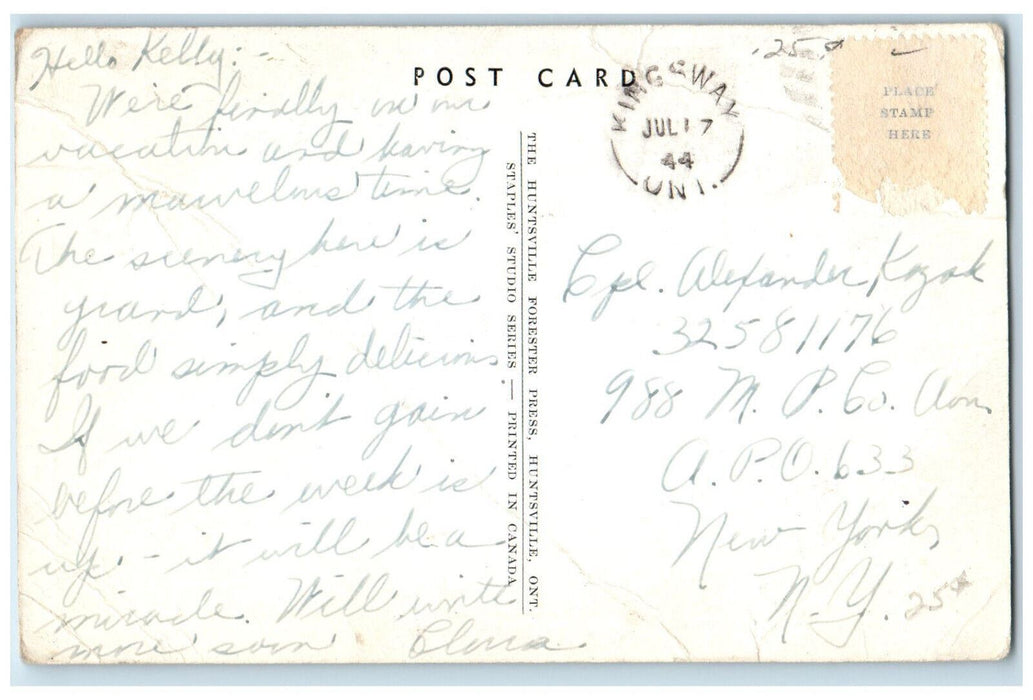 Hello Kelly: -
We're finally on our
vacation and having
a marvelous time.
The scenery here is
grand, and the
food simply delicious
If we don't gain
before the week is
up - it will be a
miracle. Will write
more soon
POST CARD
KINGSWAY
JUL 17
44
ONT.
25¢
PLACE
STAMP
HERE
THE HUNTSVILLE FORESTER PRESS, HUNTSVILLE, ONT.
STAPLES' STUDIO SERIES — PRINTED IN CANADA
Cpl. Alexander Kozak
32581176
988 M. P. Co. Avn.
A.P.O. 633
New York,
N.Y.
25¢